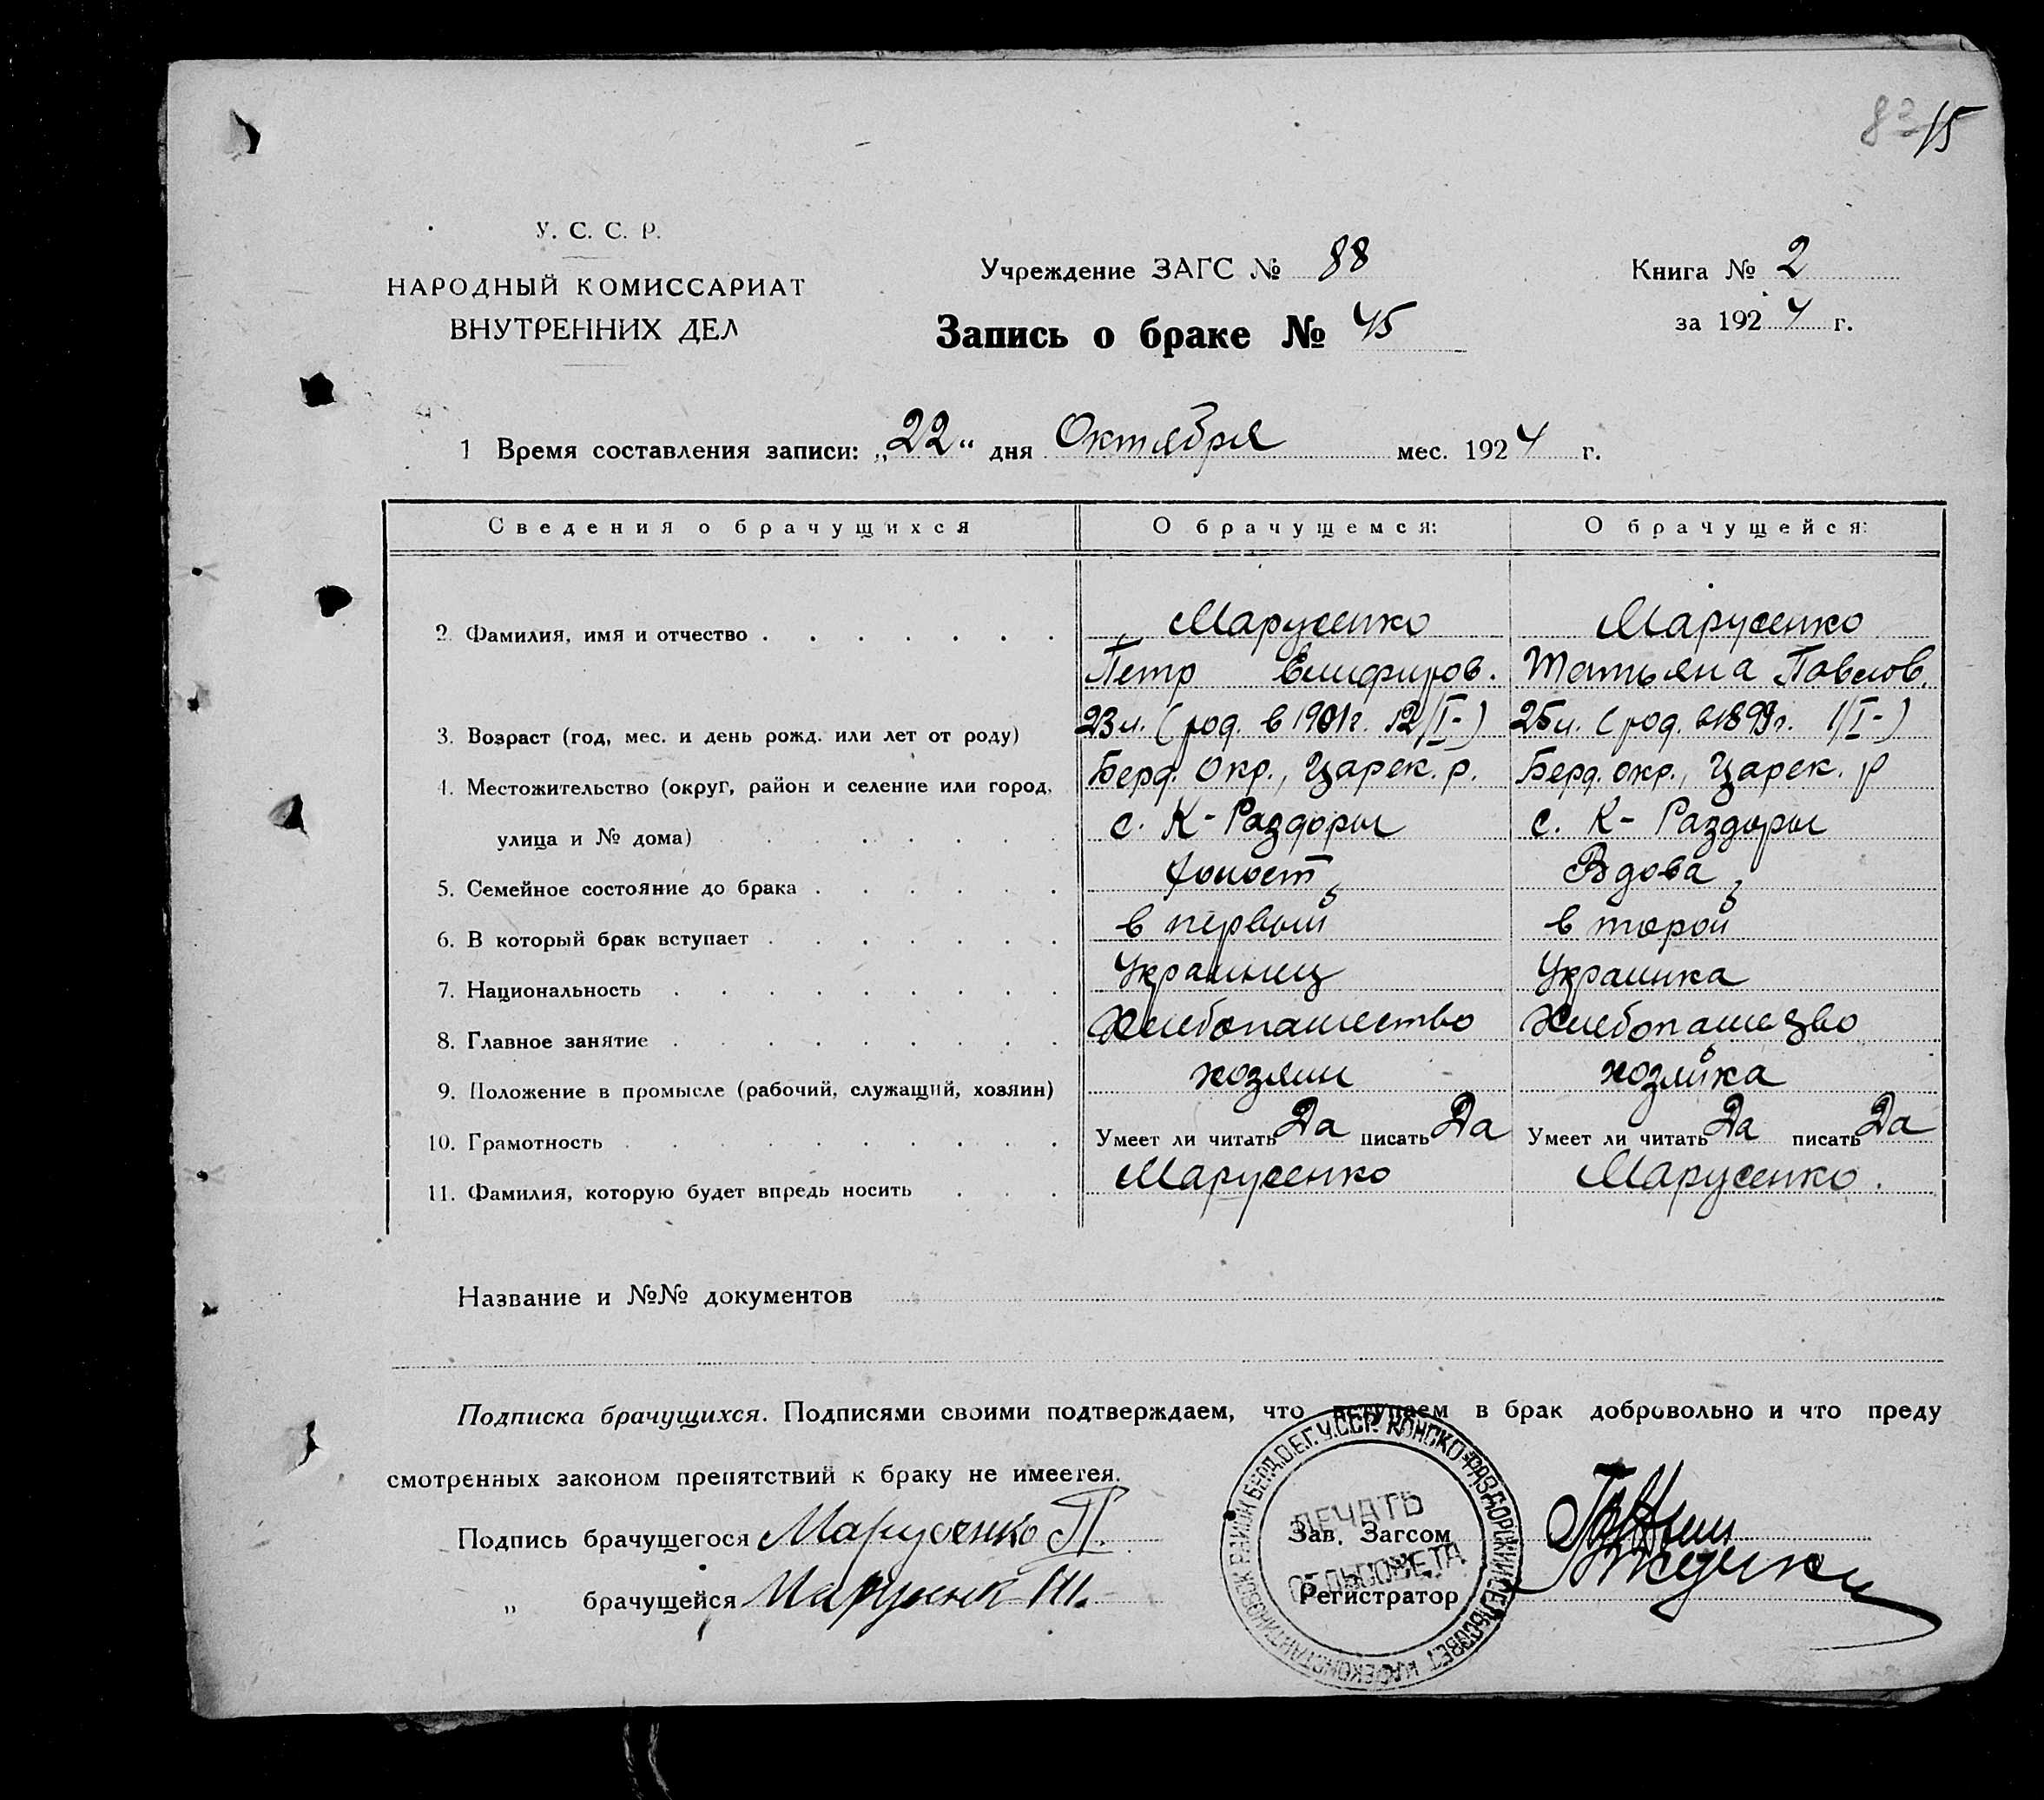 15
У. С. С. Р.
НАРОДНЫЙ КОМИССАРИАТ
ВНУТРЕННИХ ДЕЛ
Учреждение ЗАГС № 88
Книга № 2
Запись о браке № 45
за 1924 г.
1 Время составления записи: „22“ дня Октября мес. 1924 г.
Сведения о брачущихся О брачущемся: О брачущейся:
2. Фамилия, имя и отчество Марусенко Марусенко
Петр Епифиров. Татьяна Павлов.
3. Возраст (год, мес. и день рожд. или лет от роду) 23 л. (род. в 1901 г. 12/I-) 25 л. (род. в 1899 г. 1/I-)
4. Местожительство (округ, район и селение или город, Берд. Окр., Царек. р. Берд. окр., Царек. р
улица и № дома) с. К-Раздоры с. К-Раздоры
5. Семейное состояние до брака Холост Вдова
6. В который брак вступает в первый в торой
7. Национальность Украинец Украинка
8. Главное занятие Хлебопашество Хлебопашество
9. Положение в промысле (рабочий, служащий, хозяин) хозяин хозяйка
10. Грамотность Умеет ли читать Да писать Да Умеет ли читать Да писать Да
11. Фамилия, которую будет впредь носить Марусенко Марусенко.
Название и №№ документов
Подписка брачущихся. Подписями своими подтверждаем, что вступаем в брак добровольно и что преду
смотренных законом препятствий к браку не имеется.
Подпись брачущегося Марусенко П.
Зав. Загсом
„ брачущейся
Регистратор
ПЕЧАТЬ
СЕЛЬСОВЕТА